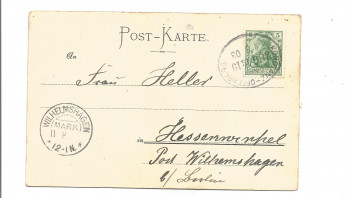 POST-KARTE.
An
Frau Heller
in Hessenwinkel
Post Wilhelmshagen
b/ Berlin
WILHELMSHAGEN
(MARK)
11 8
*12-1N.*
5